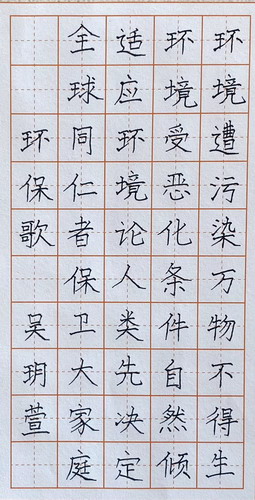 环境遭污染万物不得生
环境受恶化条件自然倾
适应环境论人类先决定
全球同仁者保卫大家庭
环保歌
吴玥萱